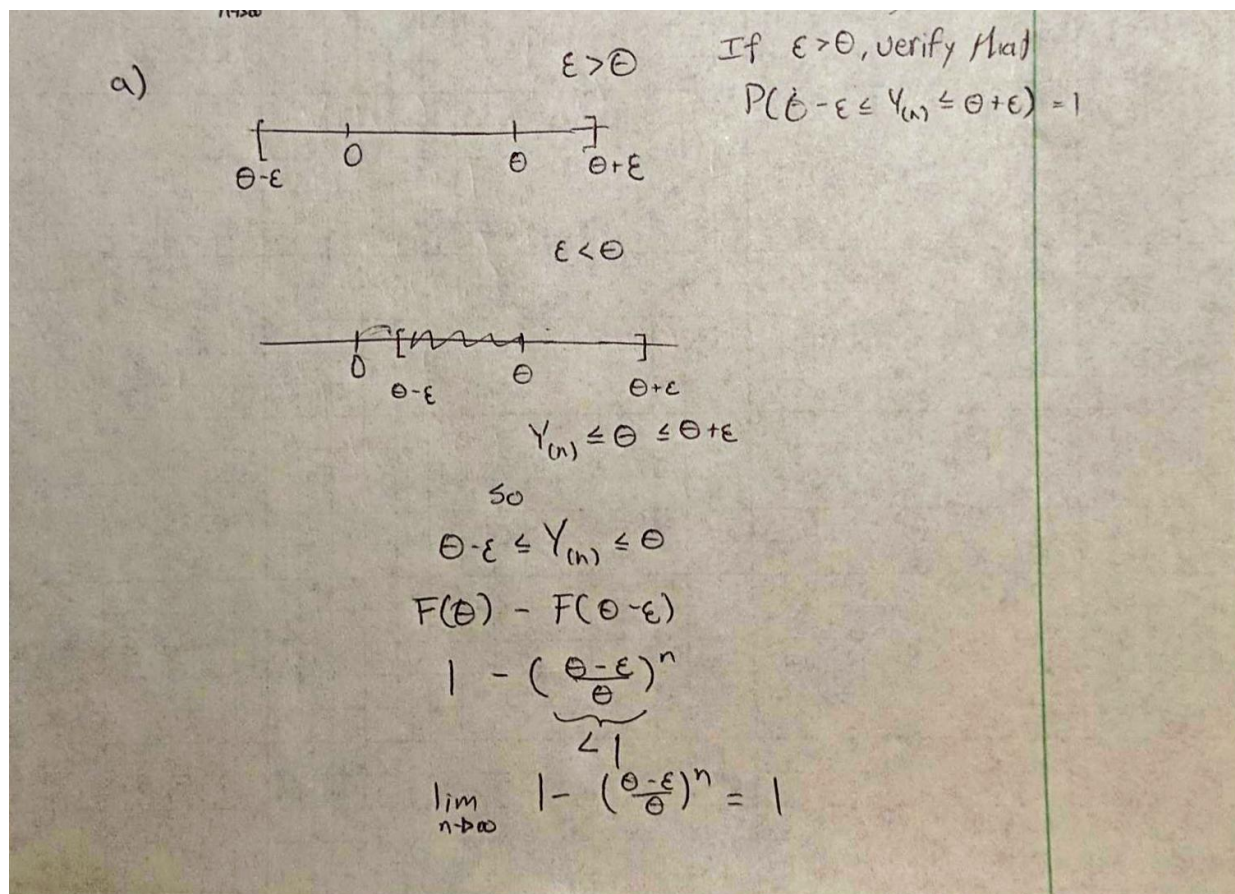 n→∞
a)
ε>θ
If ε>θ, verify that
P(θ-ε ≤ Y(n) ≤ θ+ε) = 1
[ 0 θ ]
θ-ε θ+ε
ε<θ
0 [ θ ]
θ-ε θ+ε
Y(n) ≤ θ ≤ θ+ε
so
θ-ε ≤ Y(n) ≤ θ
F(θ) - F(θ-ε)
1 - (θ-ε/θ)^n
< 1
lim n→∞ 1- (θ-ε/θ)^n = 1